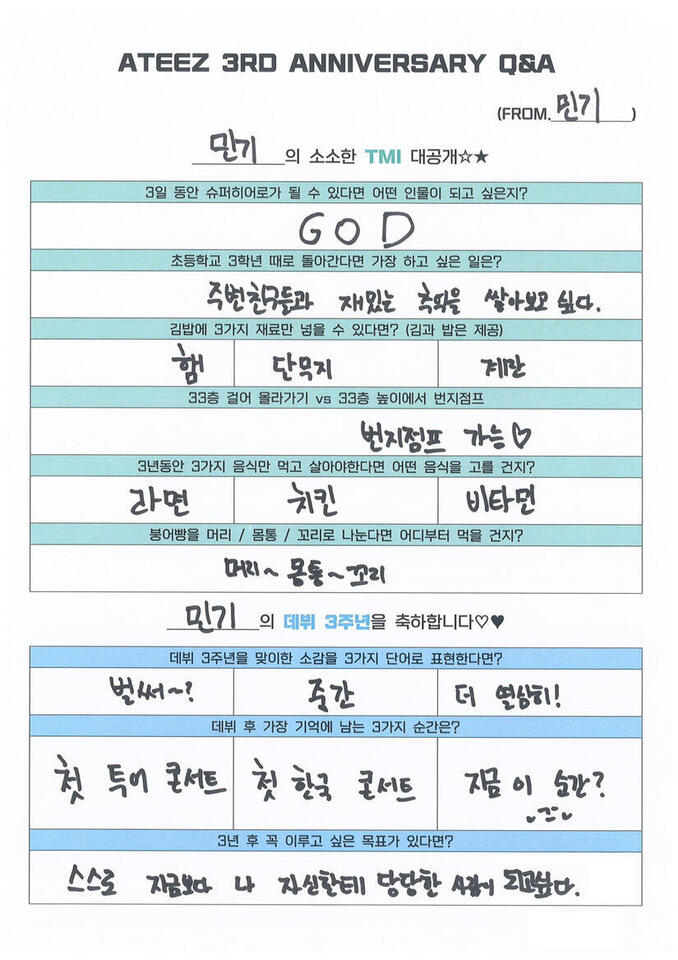 ATEEZ 3RD ANNIVERSARY Q&A
(FROM. 민기 )
민기의 소소한 TMI 대공개☆★
3일 동안 슈퍼히어로가 될 수 있다면 어떤 인물이 되고 싶은지?
GOD
초등학교 3학년 때로 돌아간다면 가장 하고 싶은 일은?
주변친구들과 재밌는 추억을 쌓아보고 싶다.
김밥에 3가지 재료만 넣을 수 있다면? (김과 밥은 제공)
햄 단무지 계란
33층 걸어 올라가기 vs 33층 높이에서 번지점프
번지점프 가능♡
3년동안 3가지 음식만 먹고 살아야한다면 어떤 음식을 고를 건지?
라면 치킨 비타민
붕어빵을 머리 / 몸통 / 꼬리로 나눈다면 어디부터 먹을 건지?
머리~ 몸통~ 꼬리
민기의 데뷔 3주년을 축하합니다♡♥
데뷔 3주년을 맞이한 소감을 3가지 단어로 표현한다면?
벌써~? 더 열심히!
데뷔 후 가장 기억에 남는 3가지 순간은?
첫 투어 콘서트 첫 한국 콘서트 지금 이 순간?
3년 후 꼭 이루고 싶은 목표가 있다면?
스스로 지금보다 나 자신한테 당당한 사람이 되고싶다.